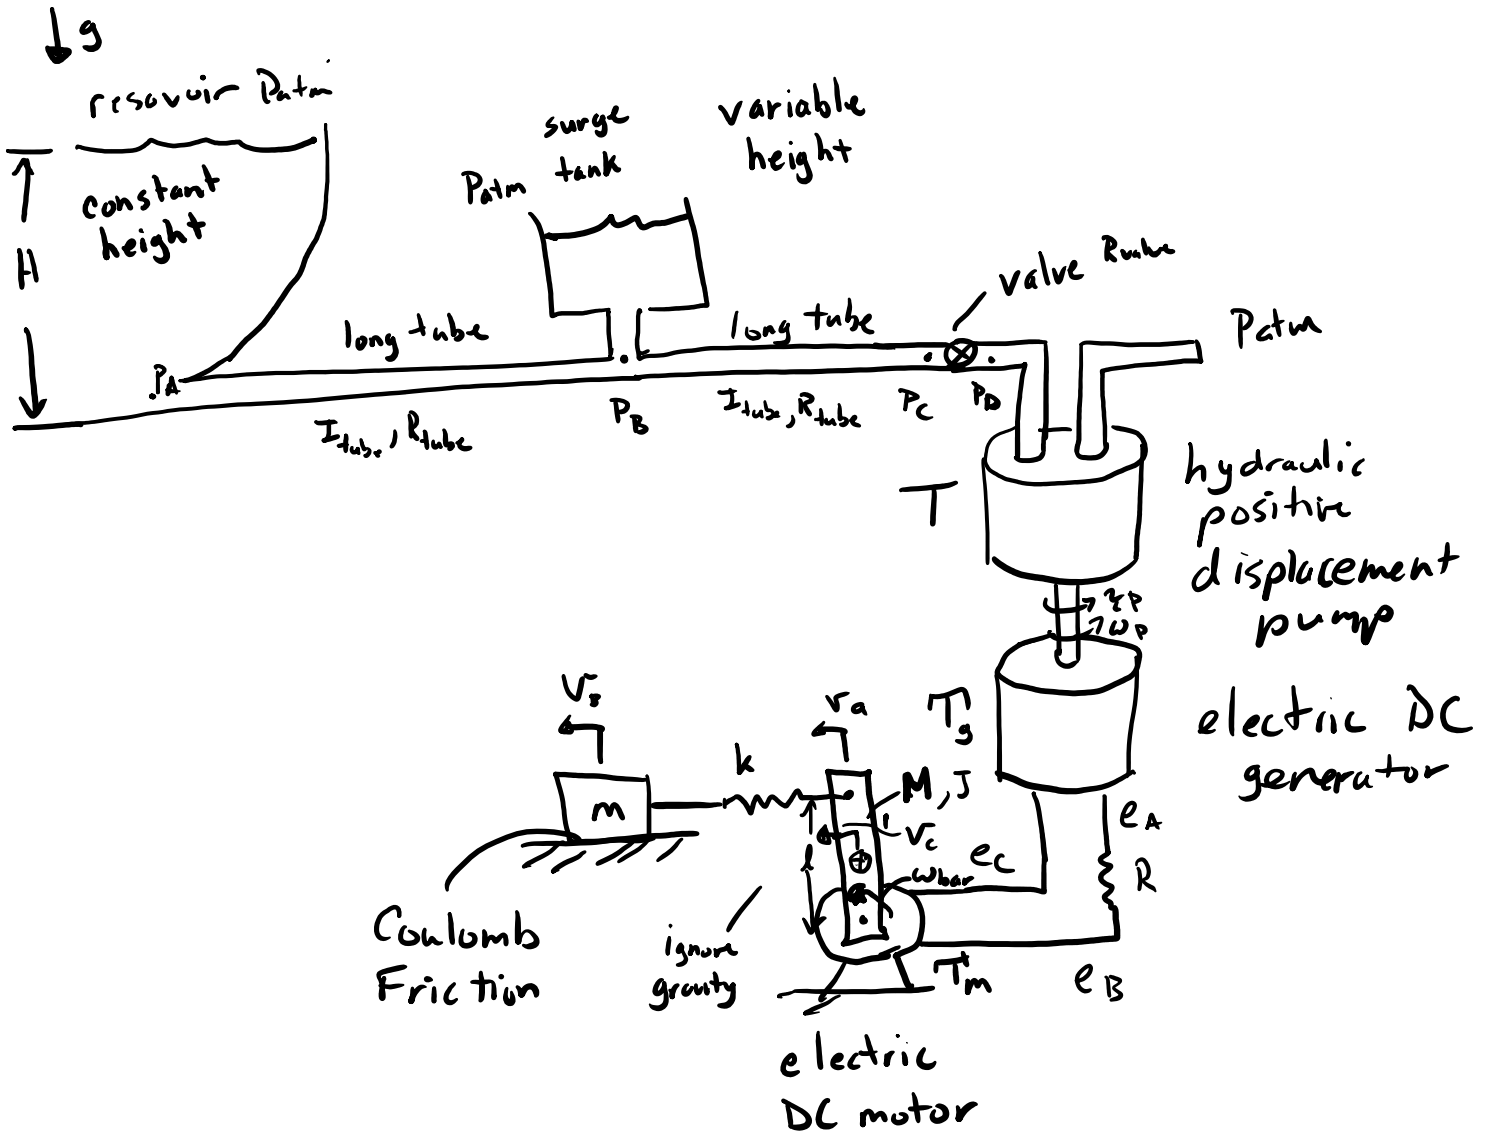 g
resovoir Patm
constant
height
H
surge
tank
Patm
variable
height
long tube
long tube
valve Rvalve
Patm
PA
PB
PC
PD
Itube, Rtube
Itube, Rtube
T
hydraulic
positive
displacement
pump
τP
ωP
electric DC
generator
Tg
Vs
va
k
m
M, J
vc
l
ωbar
ec
eA
R
eB
Coulomb
Friction
ignore
gravity
Tm
electric
DC motor